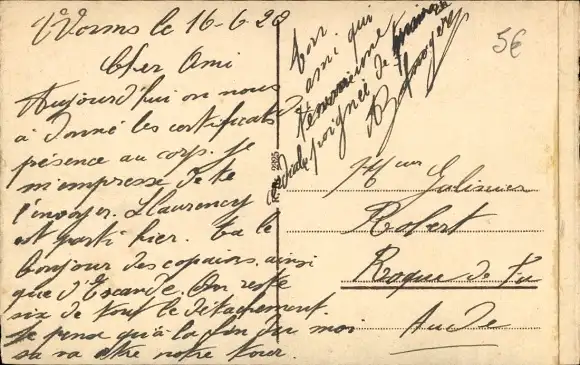 Worms le 16-6-20
Cher Ami
Aujourd'hui on nous
à donné les certificats de
présence au corps. Je
m'empresse de te
l'envoyer. Llaurency
est parti hier. Ta le
bonjour des copains ainsi
que d'Escande. On reste
six de tout le détachement.
Je pense qu'à la fin du moi
sa va être notre tour.
Ton
ami qui
poignée de
5€
Galinier
Robert
Roque de Fa
Aude